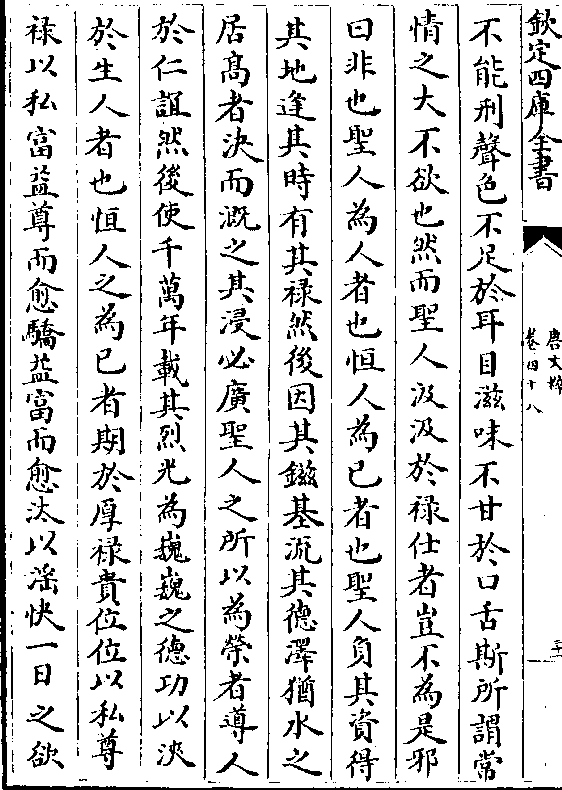 欽定四庫全書
唐文粹
卷四十八
不能刑聲色不足於耳目滋味不甘於口舌斯所謂常
情之大不欲也然而聖人汲汲於禄仕者豈不為是邪
曰非也聖人為人者也恒人為已者也聖人負其資得
其地逢其時有其禄然後因其鎡基流其德澤猶水之
居髙者決而溉之其浸必廣聖人之所以為榮者導人
於仁誼然後使千萬年載其烈光為巍巍之德功以浹
於生人者也恒人之為已者期於厚禄貴位位以私尊
禄以私富益尊而愈驕益富而愈汰以滛快一日之欲